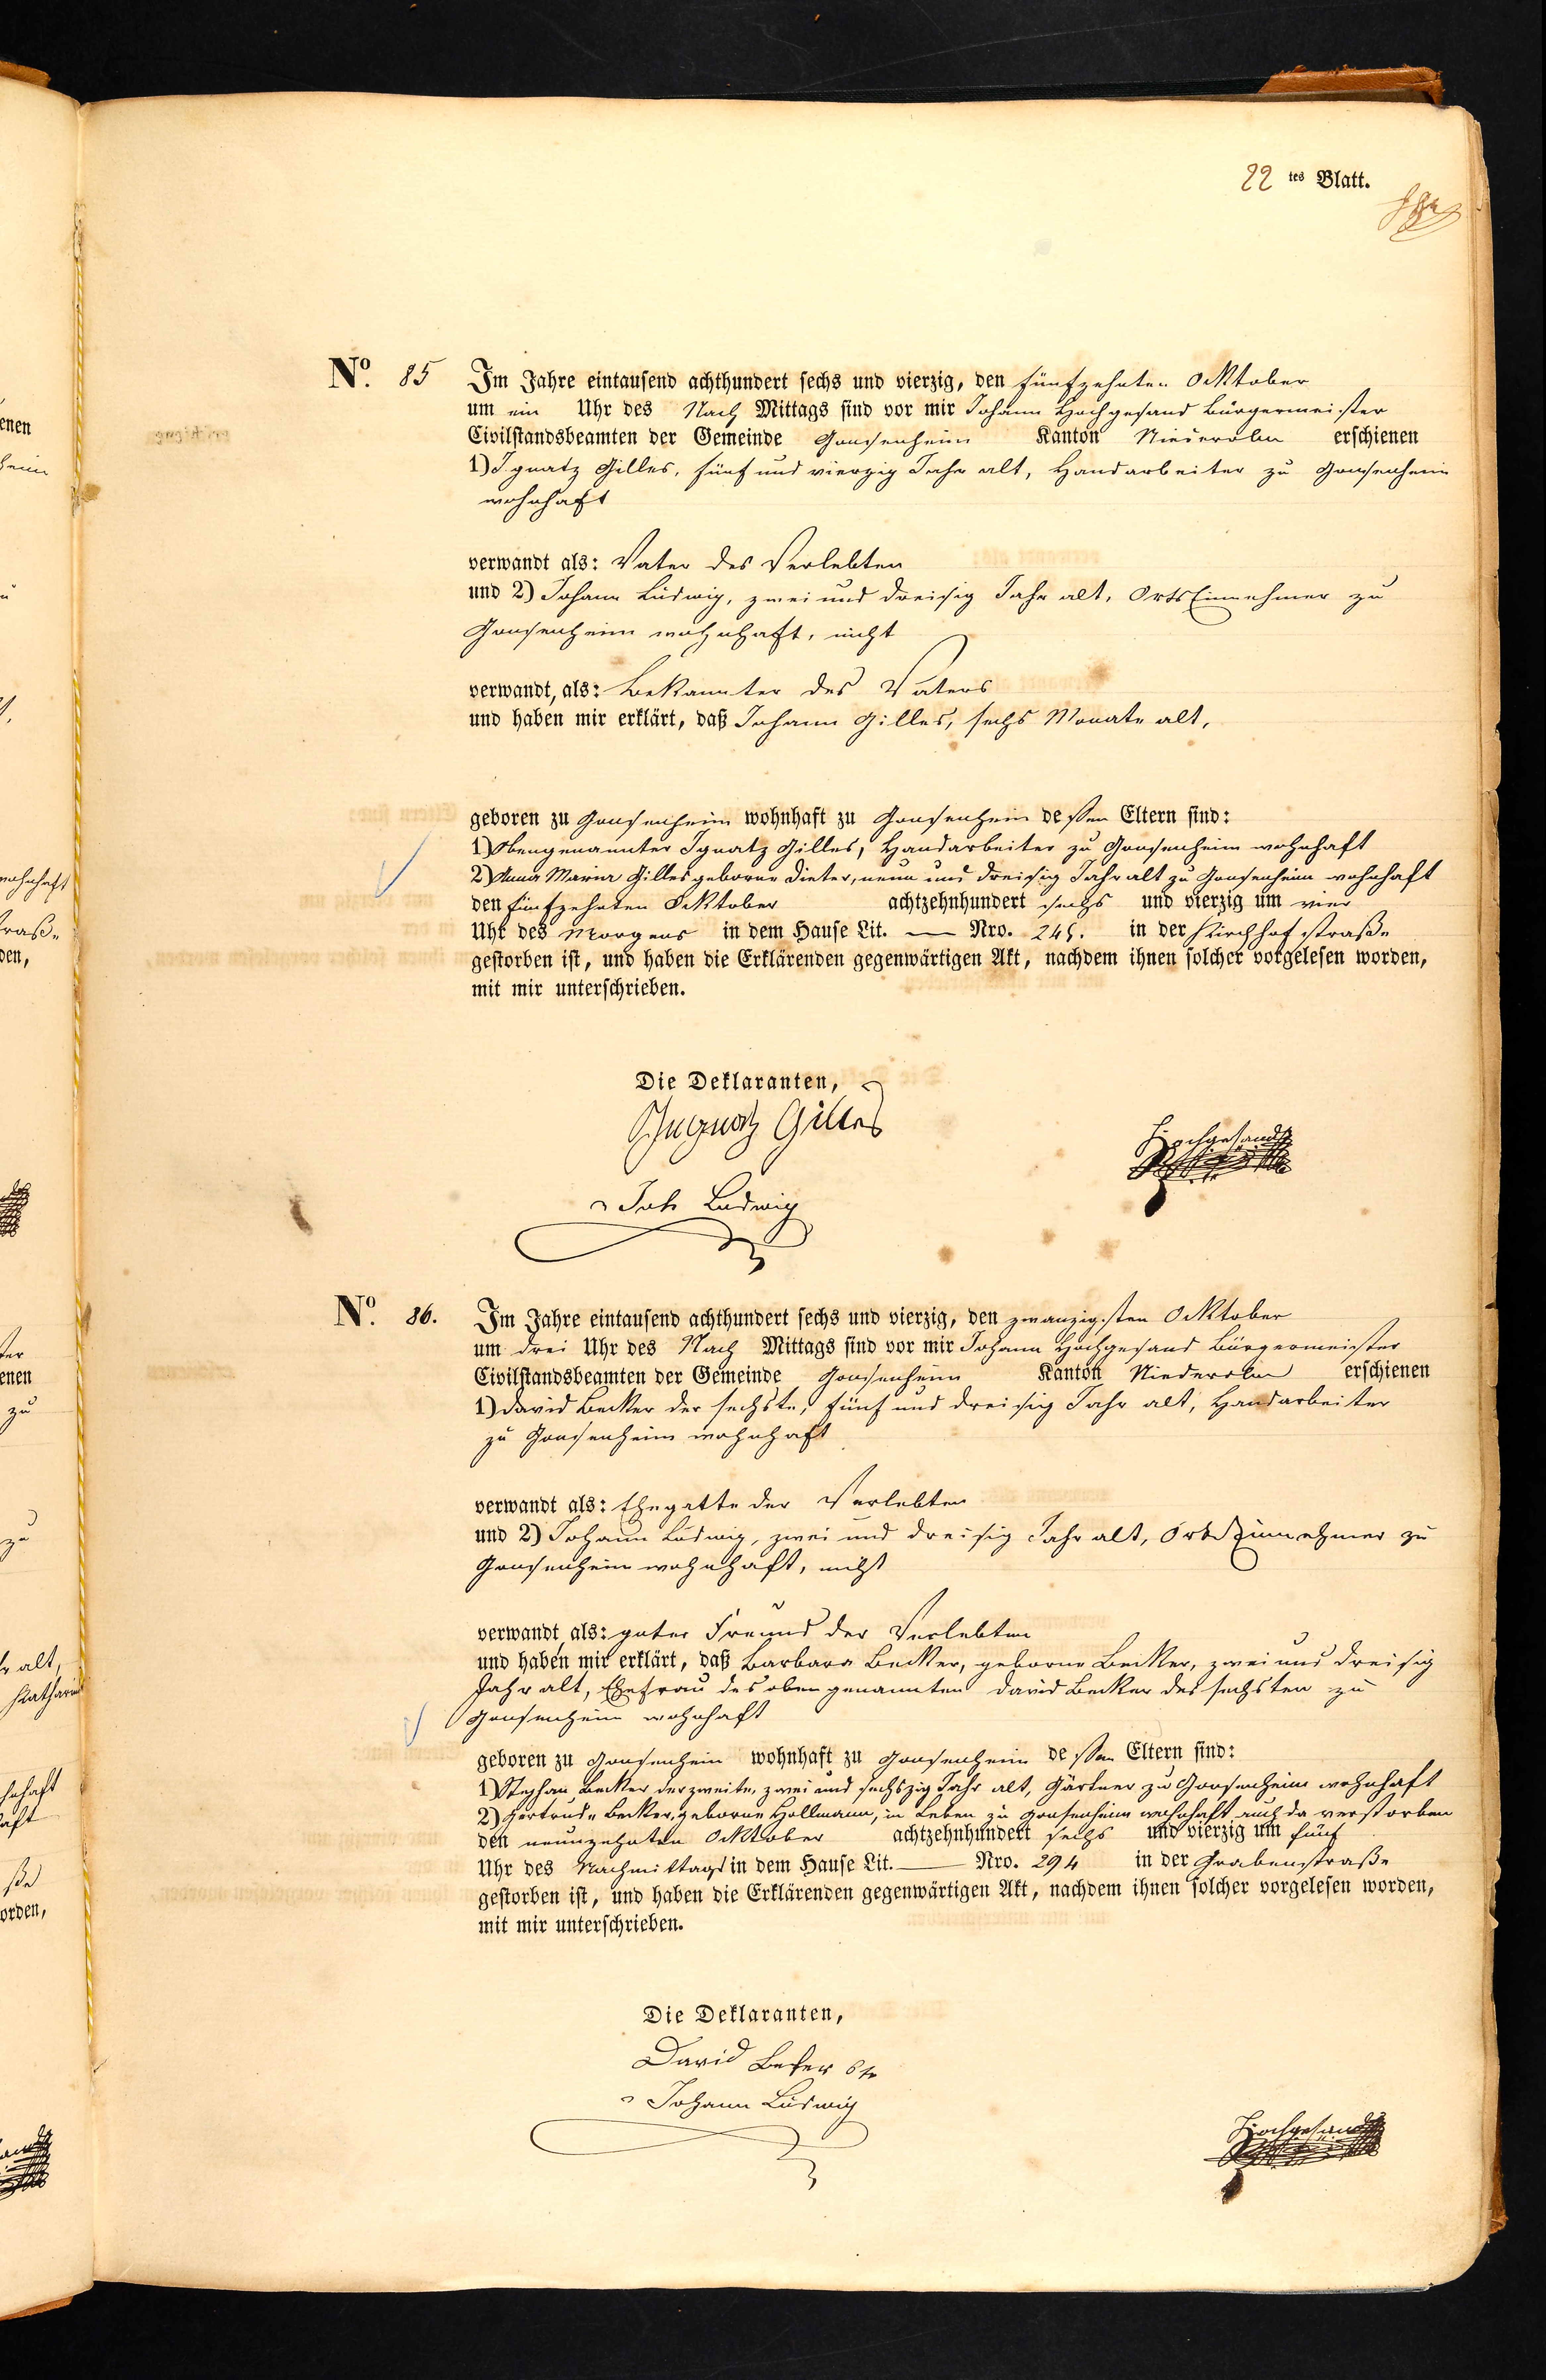 22 tes Blatt.
No. 85 Im Jahre eintausend achthundert sechs und vierzig, den fünfzehnten Oktober
um ein Uhr des Nach Mittags sind vor mir Johann Hochgesand Bürgermeister
Civilstandsbeamten der Gemeinde Gonsenheim Kanton Niederolm erschienen
1) Ignatz Gilles, fünf und vierzig Jahr alt, Handarbeiter zu Gonsenheim
wohnhaft
verwandt als: Vater des Verlebten
und 2) Johann Ludwig, zwei und dreisig Jahr alt, OrtsEinnehmer zu
Gonsenheim wohnhaft, nicht
verwandt, als: Bekannter des Vaters
und haben mir erklärt, daß Johann Gilles, sechs Monate alt,
geboren zu Gonsenheim wohnhaft zu Gonsenheim dessen Eltern sind:
1) Obengenannter Ignatz Gilles, Handarbeiter zu Gonsenheim wohnhaft
2) Anna Maria Gilles geborne Dieter, neun und dreisig Jahr alt zu Gonsenheim wohnhaft
den fünfzehnten Oktober achtzehnhundert sechs und vierzig um vier
Uhr des Morgens in dem Hause Lit. — Nro. in der Kirchhofstraße
gestorben ist, und haben die Erklärenden gegenwärtigen Akt, nachdem ihnen solcher vorgelesen worden,
mit mir unterschrieben.
Die Deklaranten,
Ingnatz Gilles
Hochgesand
Joh Ludwig
No. 86. Im Jahre eintausend achthundert sechs und vierzig, den zwanzigsten Oktober
um drei Uhr des Nach Mittags sind vor mir Johann Hochgesand Bürgermeister
Civilstandsbeamten der Gemeinde Gonsenheim Kanton Niederolm erschienen
1) David Becker der sechste, fünf und dreisig Jahr alt, Handarbeiter
zu Gonsenheim wohnhaft
verwandt als: Ehegatte der Verlebten
und 2) Johann Ludwig, zwei und dreisig Jahr alt, OrtsEinnehmer zu
Gonsenheim wohnhaft, nicht
verwandt, als: guter Freund der Verlebten
und haben mir erklärt, daß Barbara Becker, geborne Becker, zwei und dreisig
Jahr alt, Ehefrau des obengenannten David Becker des sechsten zu
Gonsenheim wohnhaft
geboren zu Gonsenheim wohnhaft zu Gonsenheim dessen Eltern sind:
1) Stephan Becker der zweite, zwei und sechszig Jahr alt, Gärtner zu Gonsenheim wohnhaft
2) Gertrude Becker, geborne Hollmann, in Leben zu Gonsenheim wohnhaft auch da verstorben
den neunzehnten Oktober achtzehnhundert sechs und vierzig um fünf
Uhr des Nachmittags in dem Hause Lit. — Nro. 294 in der Grabenstraße
gestorben ist, und haben die Erklärenden gegenwärtigen Akt, nachdem ihnen solcher vorgelesen worden,
mit mir unterschrieben.
Die Deklaranten,
David Beker 6te
Johann Ludwig
Hochgesand